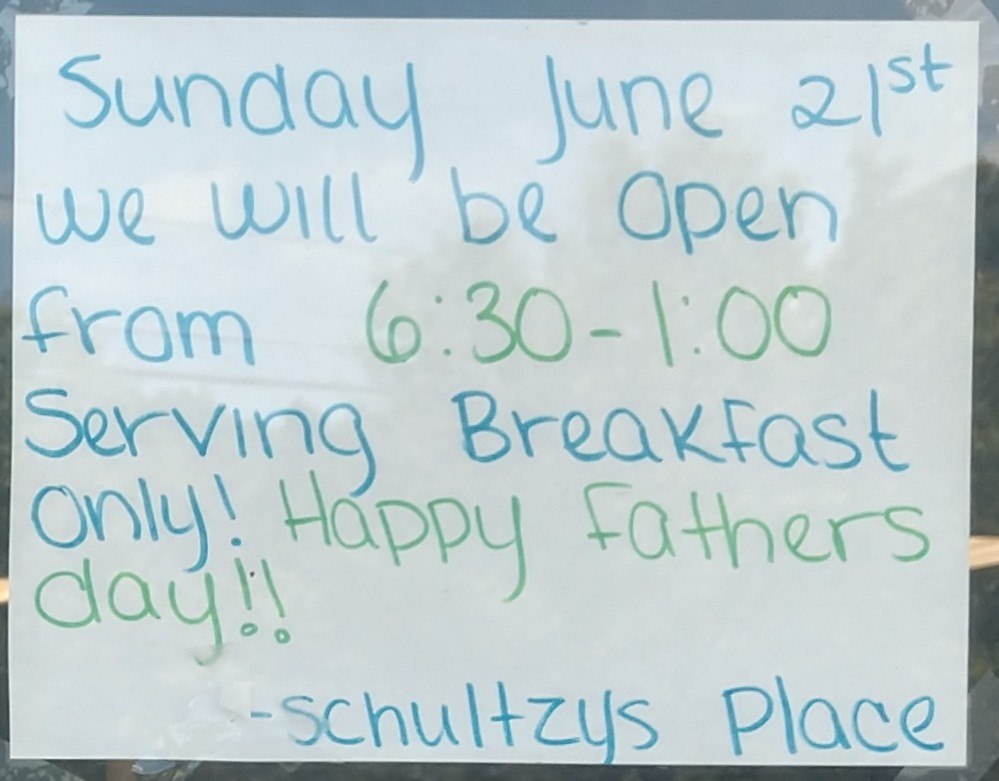 Sunday June 21st
we will be open
from 6:30-1:00
Serving Breakfast
only! Happy Fathers
day!!
-Schultzys Place